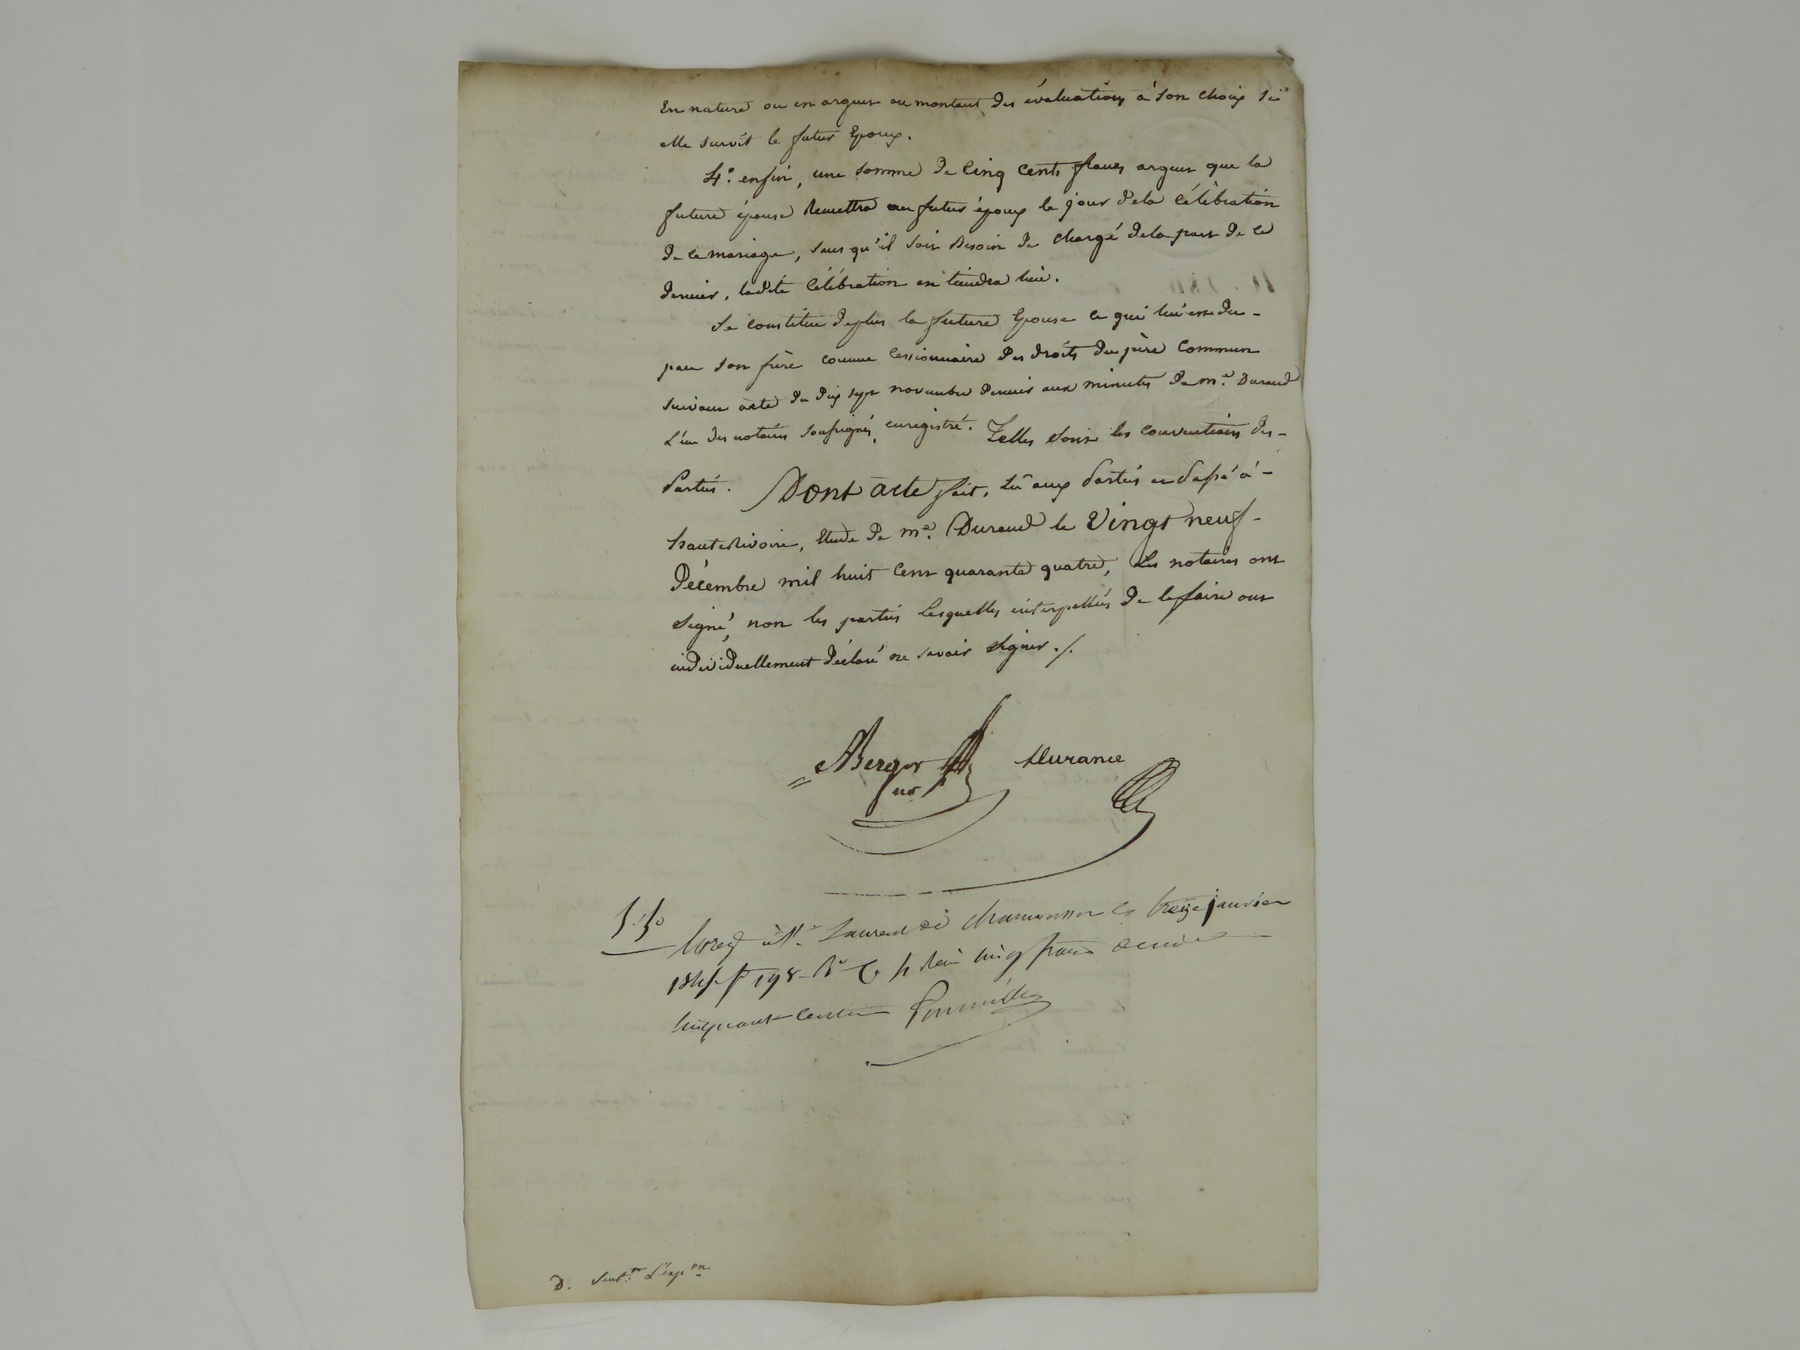 en nature ou en argent au montant des évaluations à son choix si
elle survit le futur époux.
4.° enfin, une somme de cinq cents francs argent que la
future épouse remettra au futur époux le jour de la célébration
de ce mariage, sans qu'il soit besoin de charge de la part de ce
dernier, ladite célébration en tiendra lieu.
Se constitue de plus la future épouse ce qui lui est du -
par son frère comme cessionnaire des droits du père commun
suivant acte du dix sept novembre dernier aux minutes de m.e Durand
l'un des notaires soussignés, enregistré. Telles sont les conventions des -
parties. Dont acte fait, lu aux parties et passé à -
hauterivoire, étude de m.e Durand le vingt neuf -
Décembre mil huit cent quarante quatre, les notaires ont
signé, non les parties lesquelles interpellées de le faire ont
individuellement déclaré ne savoir signer ./.
Berger
nre
5.50
à St. Laurent de chamousset le treize janvier
1845 f° 198 Ro C 4 Reçu cinq francs
cinquante centimes
D.